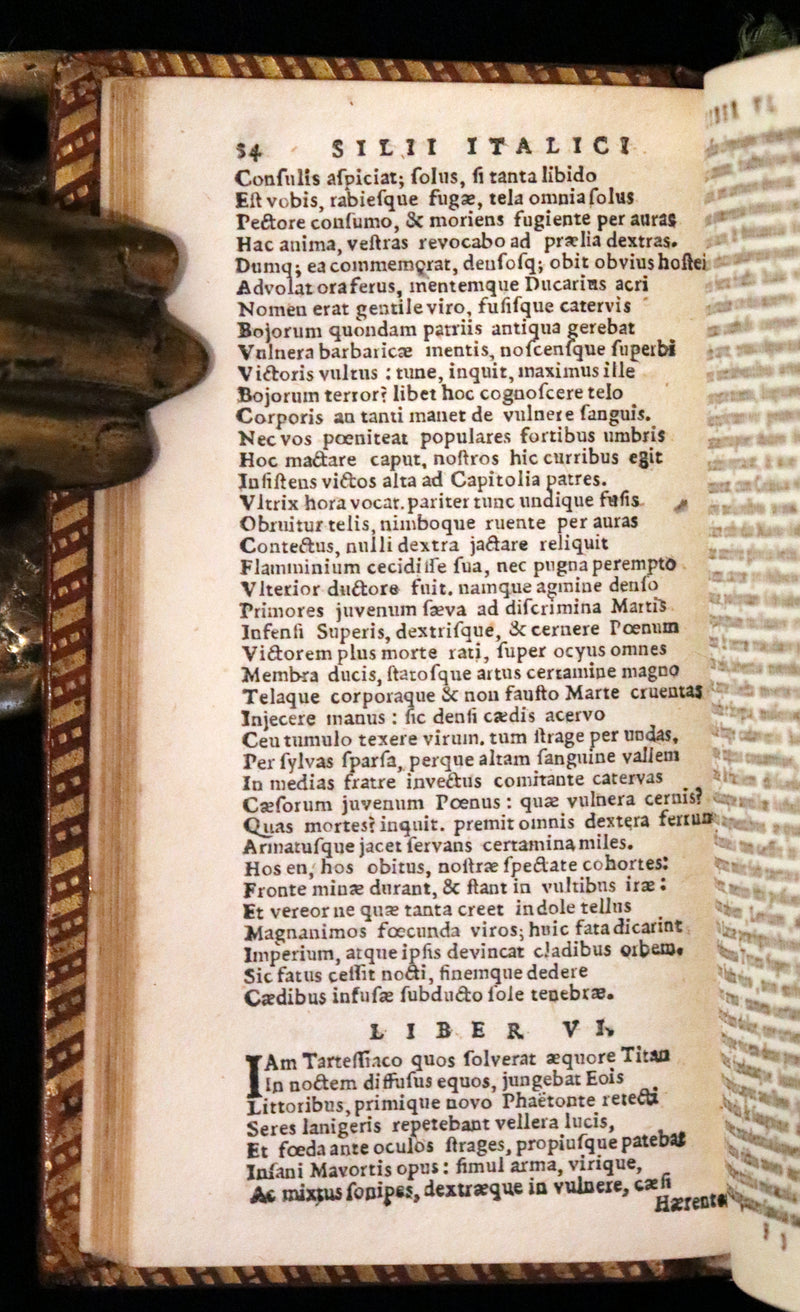 34 SILII ITALICI
Conſulis aſpiciat; ſolus, ſi tanta libido
Eſt vobis, rabieſque fugæ, tela omnia ſolus
Pectore conſumo, & moriens fugiente per auras
Hac anima, veſtras revocabo ad prælia dextras.
Dumq; ea commemorat, denſoſq; obit obvius hoſtei
Advolat ora ferus, mentemque Ducarius acri
Nomen erat gentile viro, fuſiſque catervis
Bojorum quondam patriis antiqua gerebat
Vulnera barbaricæ mentis, noſcenſque ſuperbi
Victoris vultus : tune, inquit, maximus ille
Bojorum terror? libet hoc cognoſcere telo
Corporis an tanti manet de vulnere ſanguis.
Nec vos pœniteat populares fortibus umbris
Hoc mactare caput, noſtros hic curribus egit
Inſiſtens victos alta ad Capitolia patres.
Vltrix hora vocat. pariter tunc undique fuſis
Obruitur telis, nimboque ruente per auras
Contectus, nulli dextra jactare reliquit
Flamminium cecidiſſe ſua, nec pugna perempto
Vlterior ductore fuit. namque agmine denſo
Primores juvenum ſæva ad diſcrimina Martis
Infenſi Superis, dextriſque, & cernere Pœnum
Victorem plus morte rati, ſuper ocyus omnes
Membra ducis, ſtatoſque artus certamine magno
Telaque corporaque & non fauſto Marte cruentas
Injecere manus : ſic denſi cædis acervo
Ceu tumulo texere virum. tum ſtrage per undas,
Per ſylvas ſparſa, perque altam ſanguine vallem
In medias fratre invectus comitante catervas
Cæſorum juvenum Pœnus : quæ vulnera cernis?
Quas mortes? inquit. premit omnis dextera ferrum
Armatuſque jacet ſervans certamina miles.
Hos en, hos obitus, noſtræ ſpectate cohortes:
Fronte minæ durant, & ſtant in vultibus iræ :
Et vereor ne quæ tanta creet indole tellus
Magnanimos fœcunda viros; huic fata dicarint
Imperium, atque ipſis devincat cladibus orbem.
Sic fatus ceſſit nocti, finemque dedere
Cædibus infuſæ ſubducto ſole tenebræ.
LIBER VI.
IAm Tarteſſiaco quos ſolverat æquore Titan
In noctem diffuſus equos, jungebat Eois
Littoribus, primique novo Phaëtonte retecti
Seres lanigeris repetebant vellera lucis,
Et fœda ante oculos ſtrages, propiuſque patebat
Inſani Mavortis opus : ſimul arma, virique,
Ac mixtus ſonipes, dextræque in vulnere, cæſi
Hærente